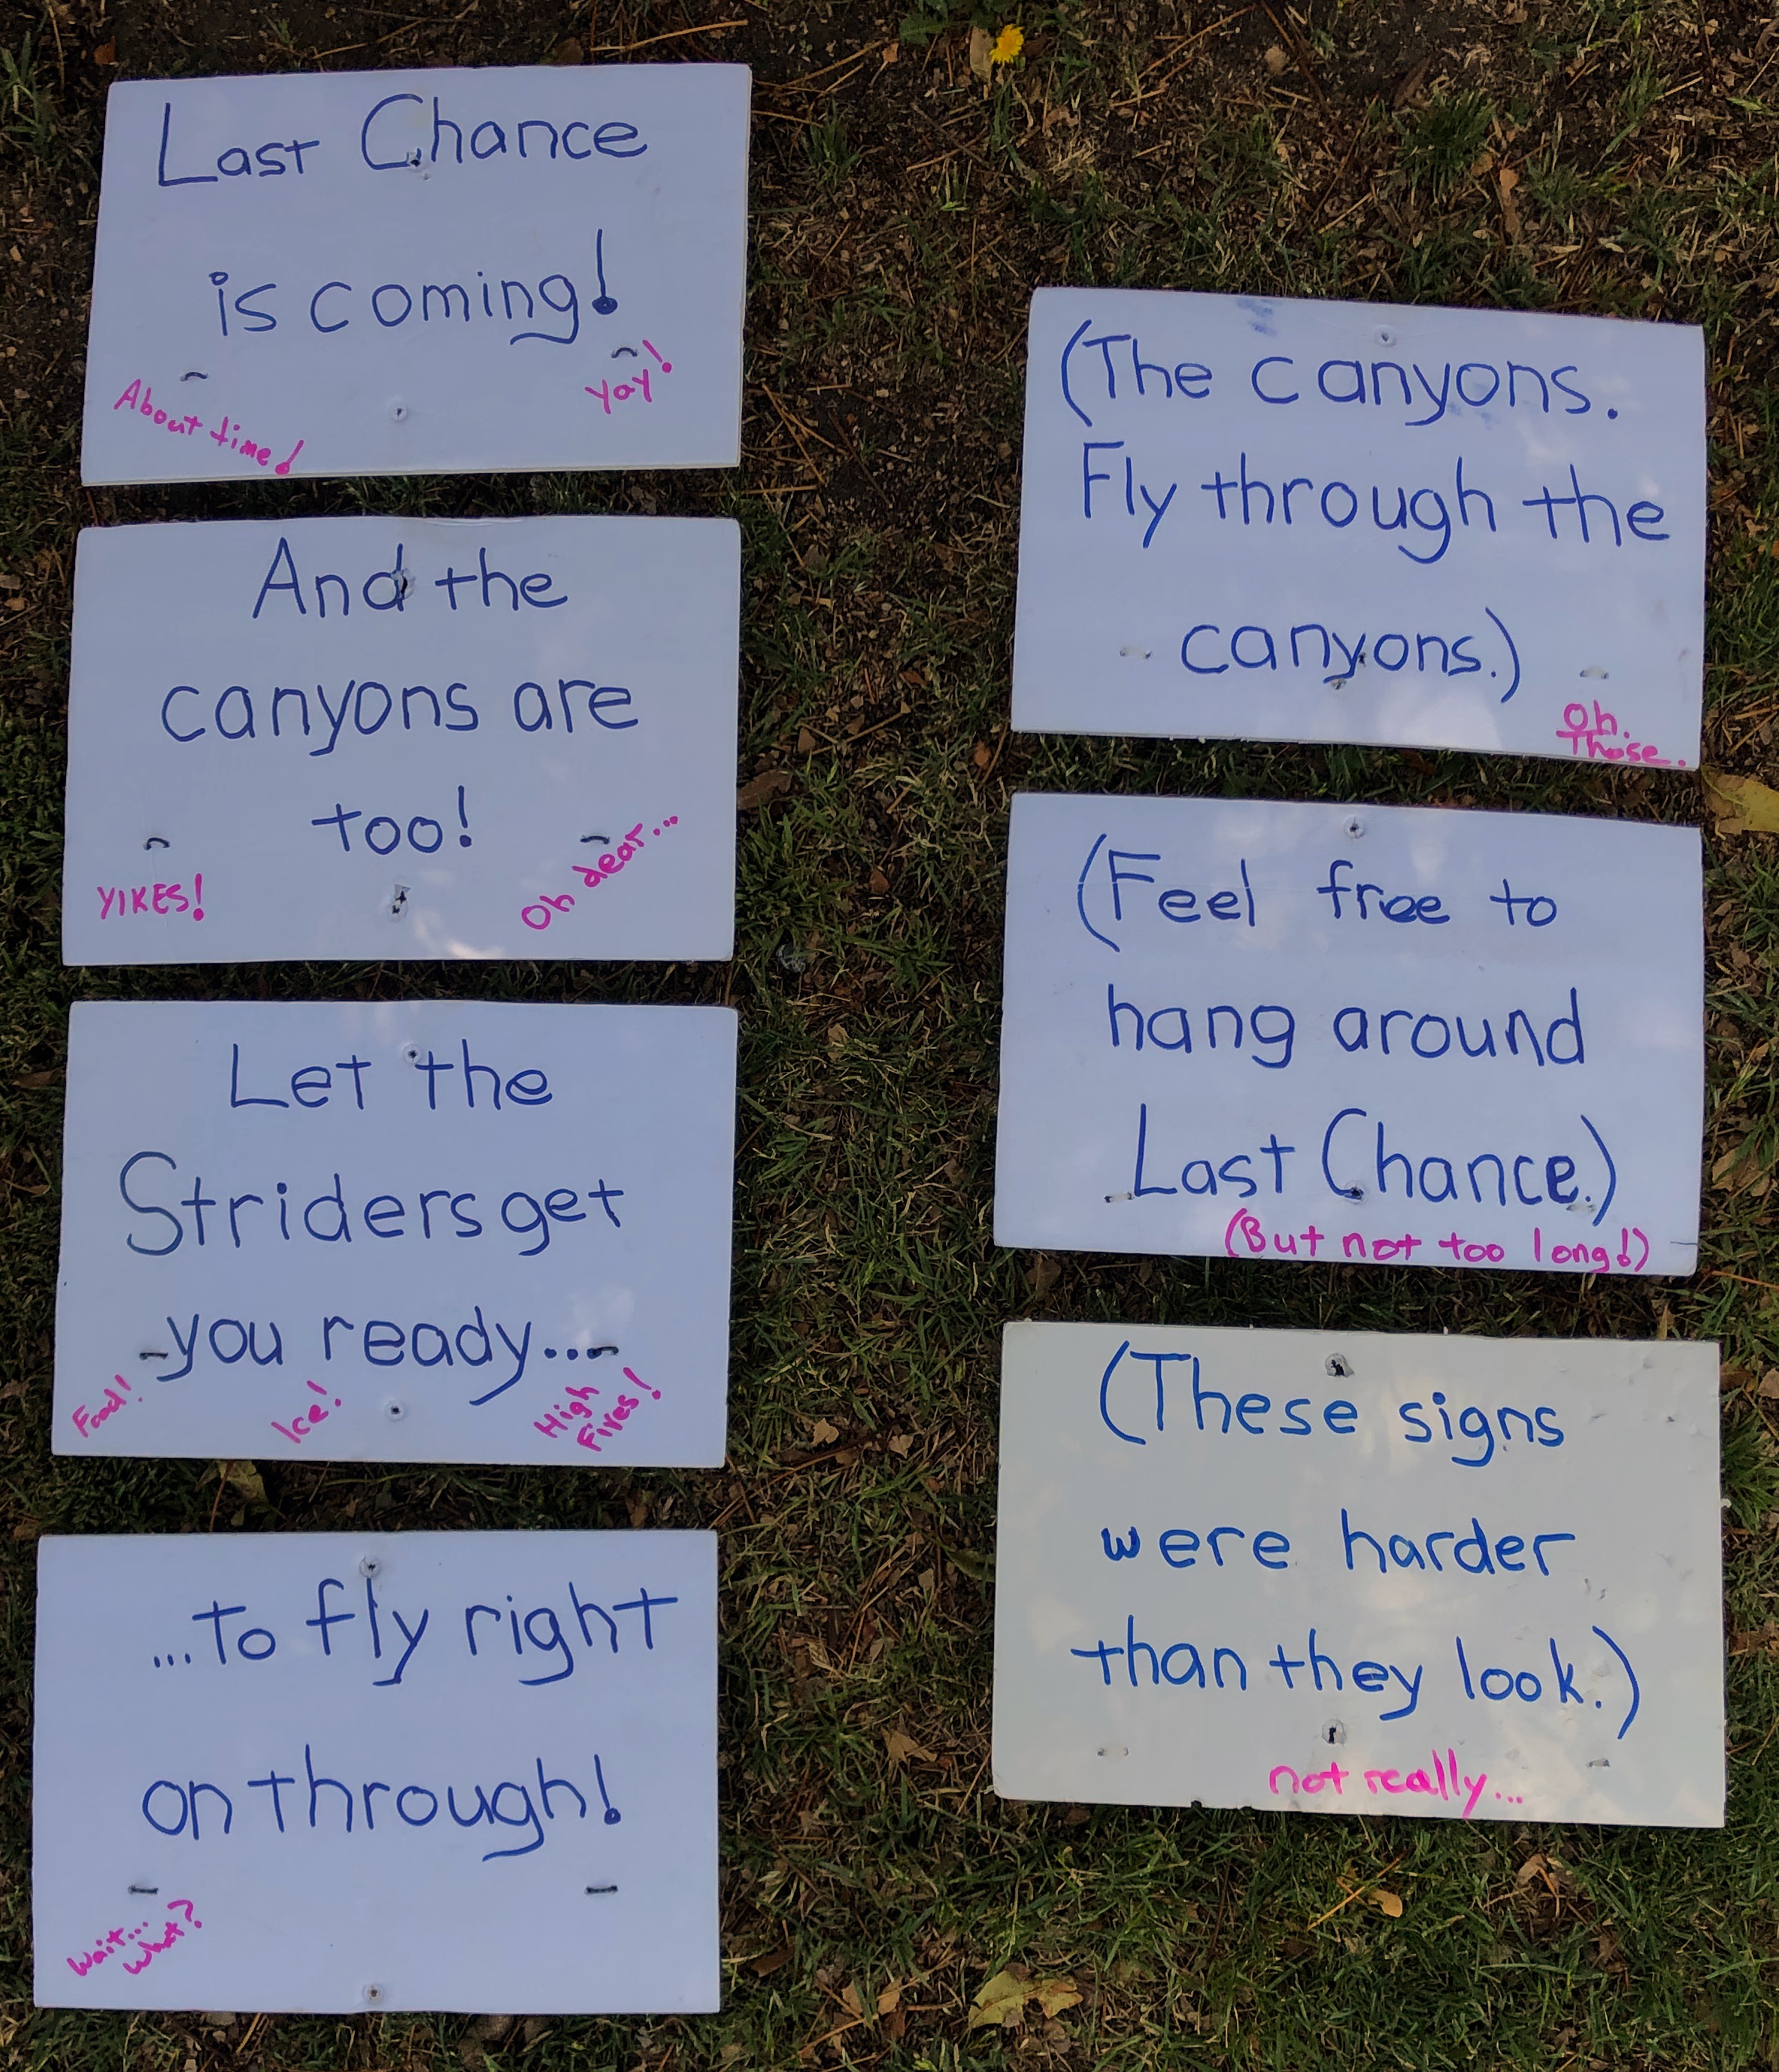 Last Chance
is coming!
About time!
Yay!
And the
canyons are
too!
YIKES!
Oh dear...
Let the
Striders get
you ready...
Food!
Ice!
High
Fives!
...to fly right
on through!
Wait...
What?
(The canyons.
Fly through the
canyons.)
Oh.
Those.
(Feel free to
hang around
Last Chance.)
(But not too long!)
(These signs
were harder
than they look.)
not really...